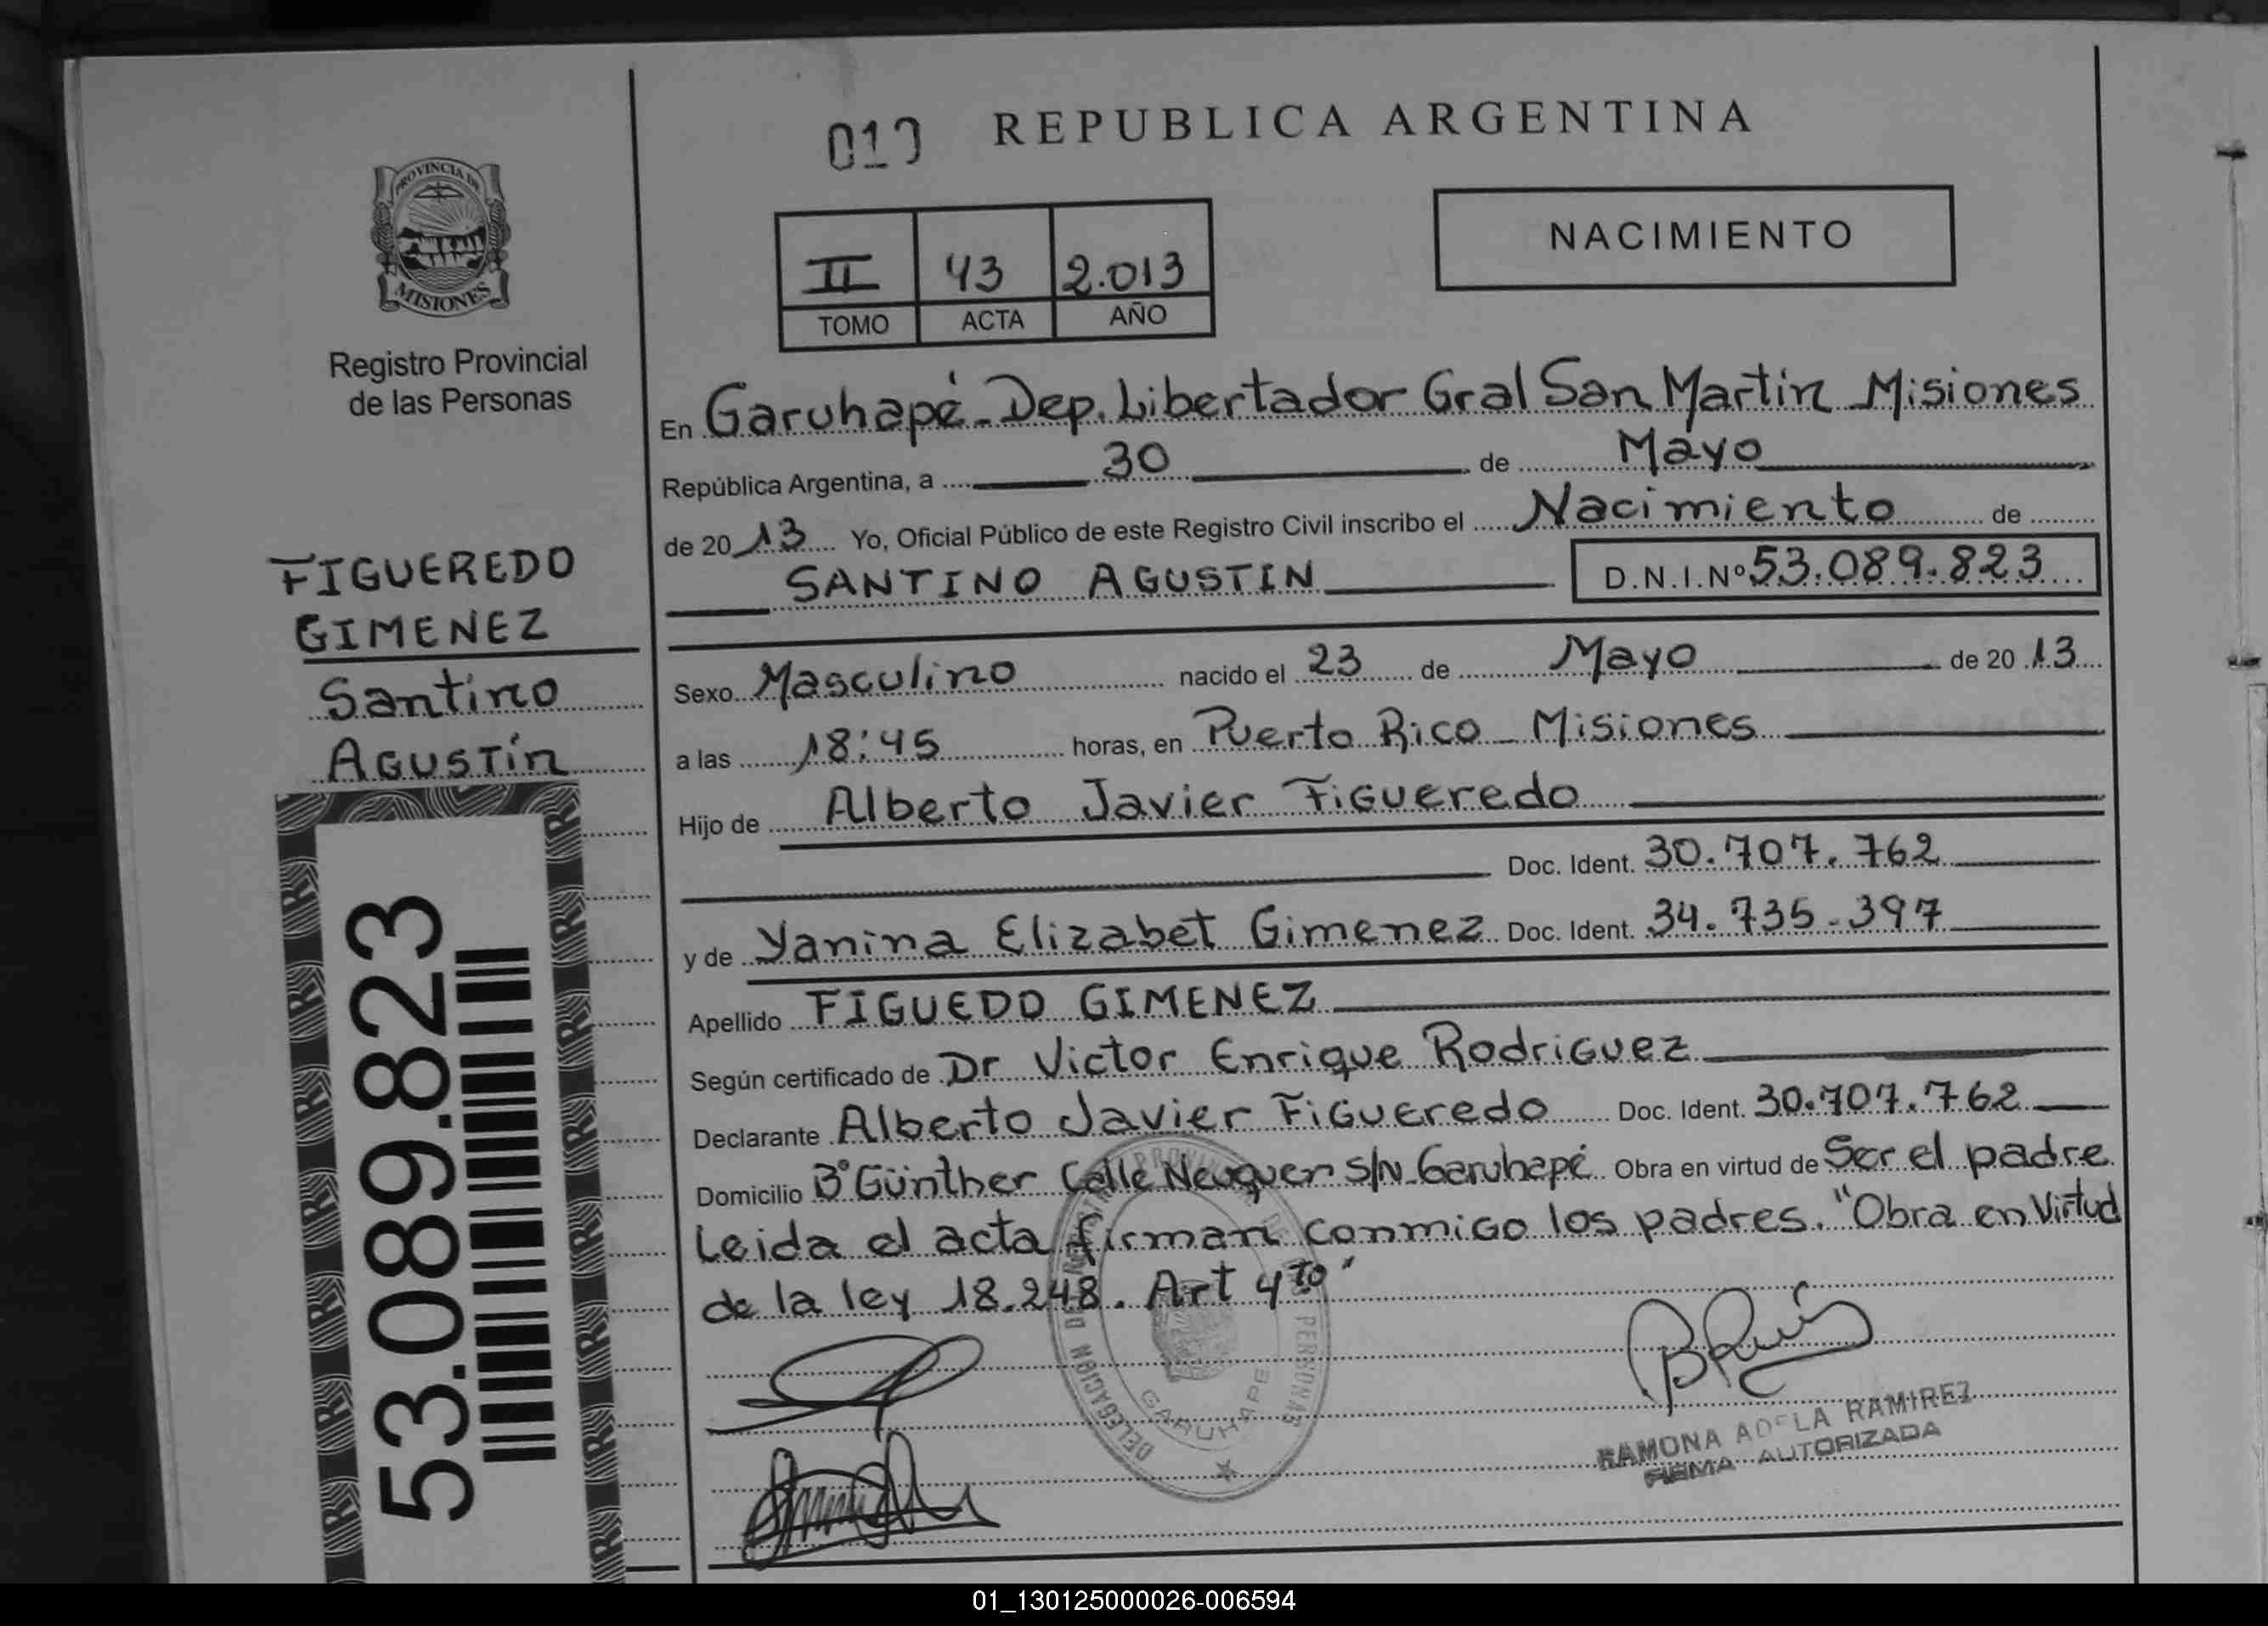 REPUBLICA ARGENTINA
PROVINCIA DE
MISIONES
Registro Provincial
de las Personas
NACIMIENTO
II 43 2.013
TOMO ACTA AÑO
En Garuhapé - Dep. Libertador Gral San Martín Misiones
República Argentina, a 30 de Mayo
de 2013 Yo, Oficial Público de este Registro Civil inscribo el Nacimiento de
SANTINO AGUSTIN D.N.I.Nº 53.089.823
FIGUEREDO
GIMENEZ
Santino
Agustín
53.089.823
Sexo Masculino nacido el 23 de Mayo de 2013
a las 18:45 horas, en Puerto Rico - Misiones
Hijo de Alberto Javier Figueredo
Doc. Ident. 30.707.762
y de Yanina Elizabet Gimenez Doc. Ident. 34.735-397
Apellido FIGUEDO GIMENEZ
Según certificado de Dr Victor Enrique Rodriguez
Declarante Alberto Javier Figueredo Doc. Ident. 30.707.762
Domicilio B° Günther Calle Neuquer S/N-Garuhapé Obra en virtud de Ser el padre
Leida el acta firman conmigo los padres. "Obra en Virtud
de la ley 18.248. Art 4to"
DELEGACION PERSONAS
GARUHAPE
RAMONA ADELA RAMIREZ
FIRMA AUTORIZADA
01_130125000026-006594